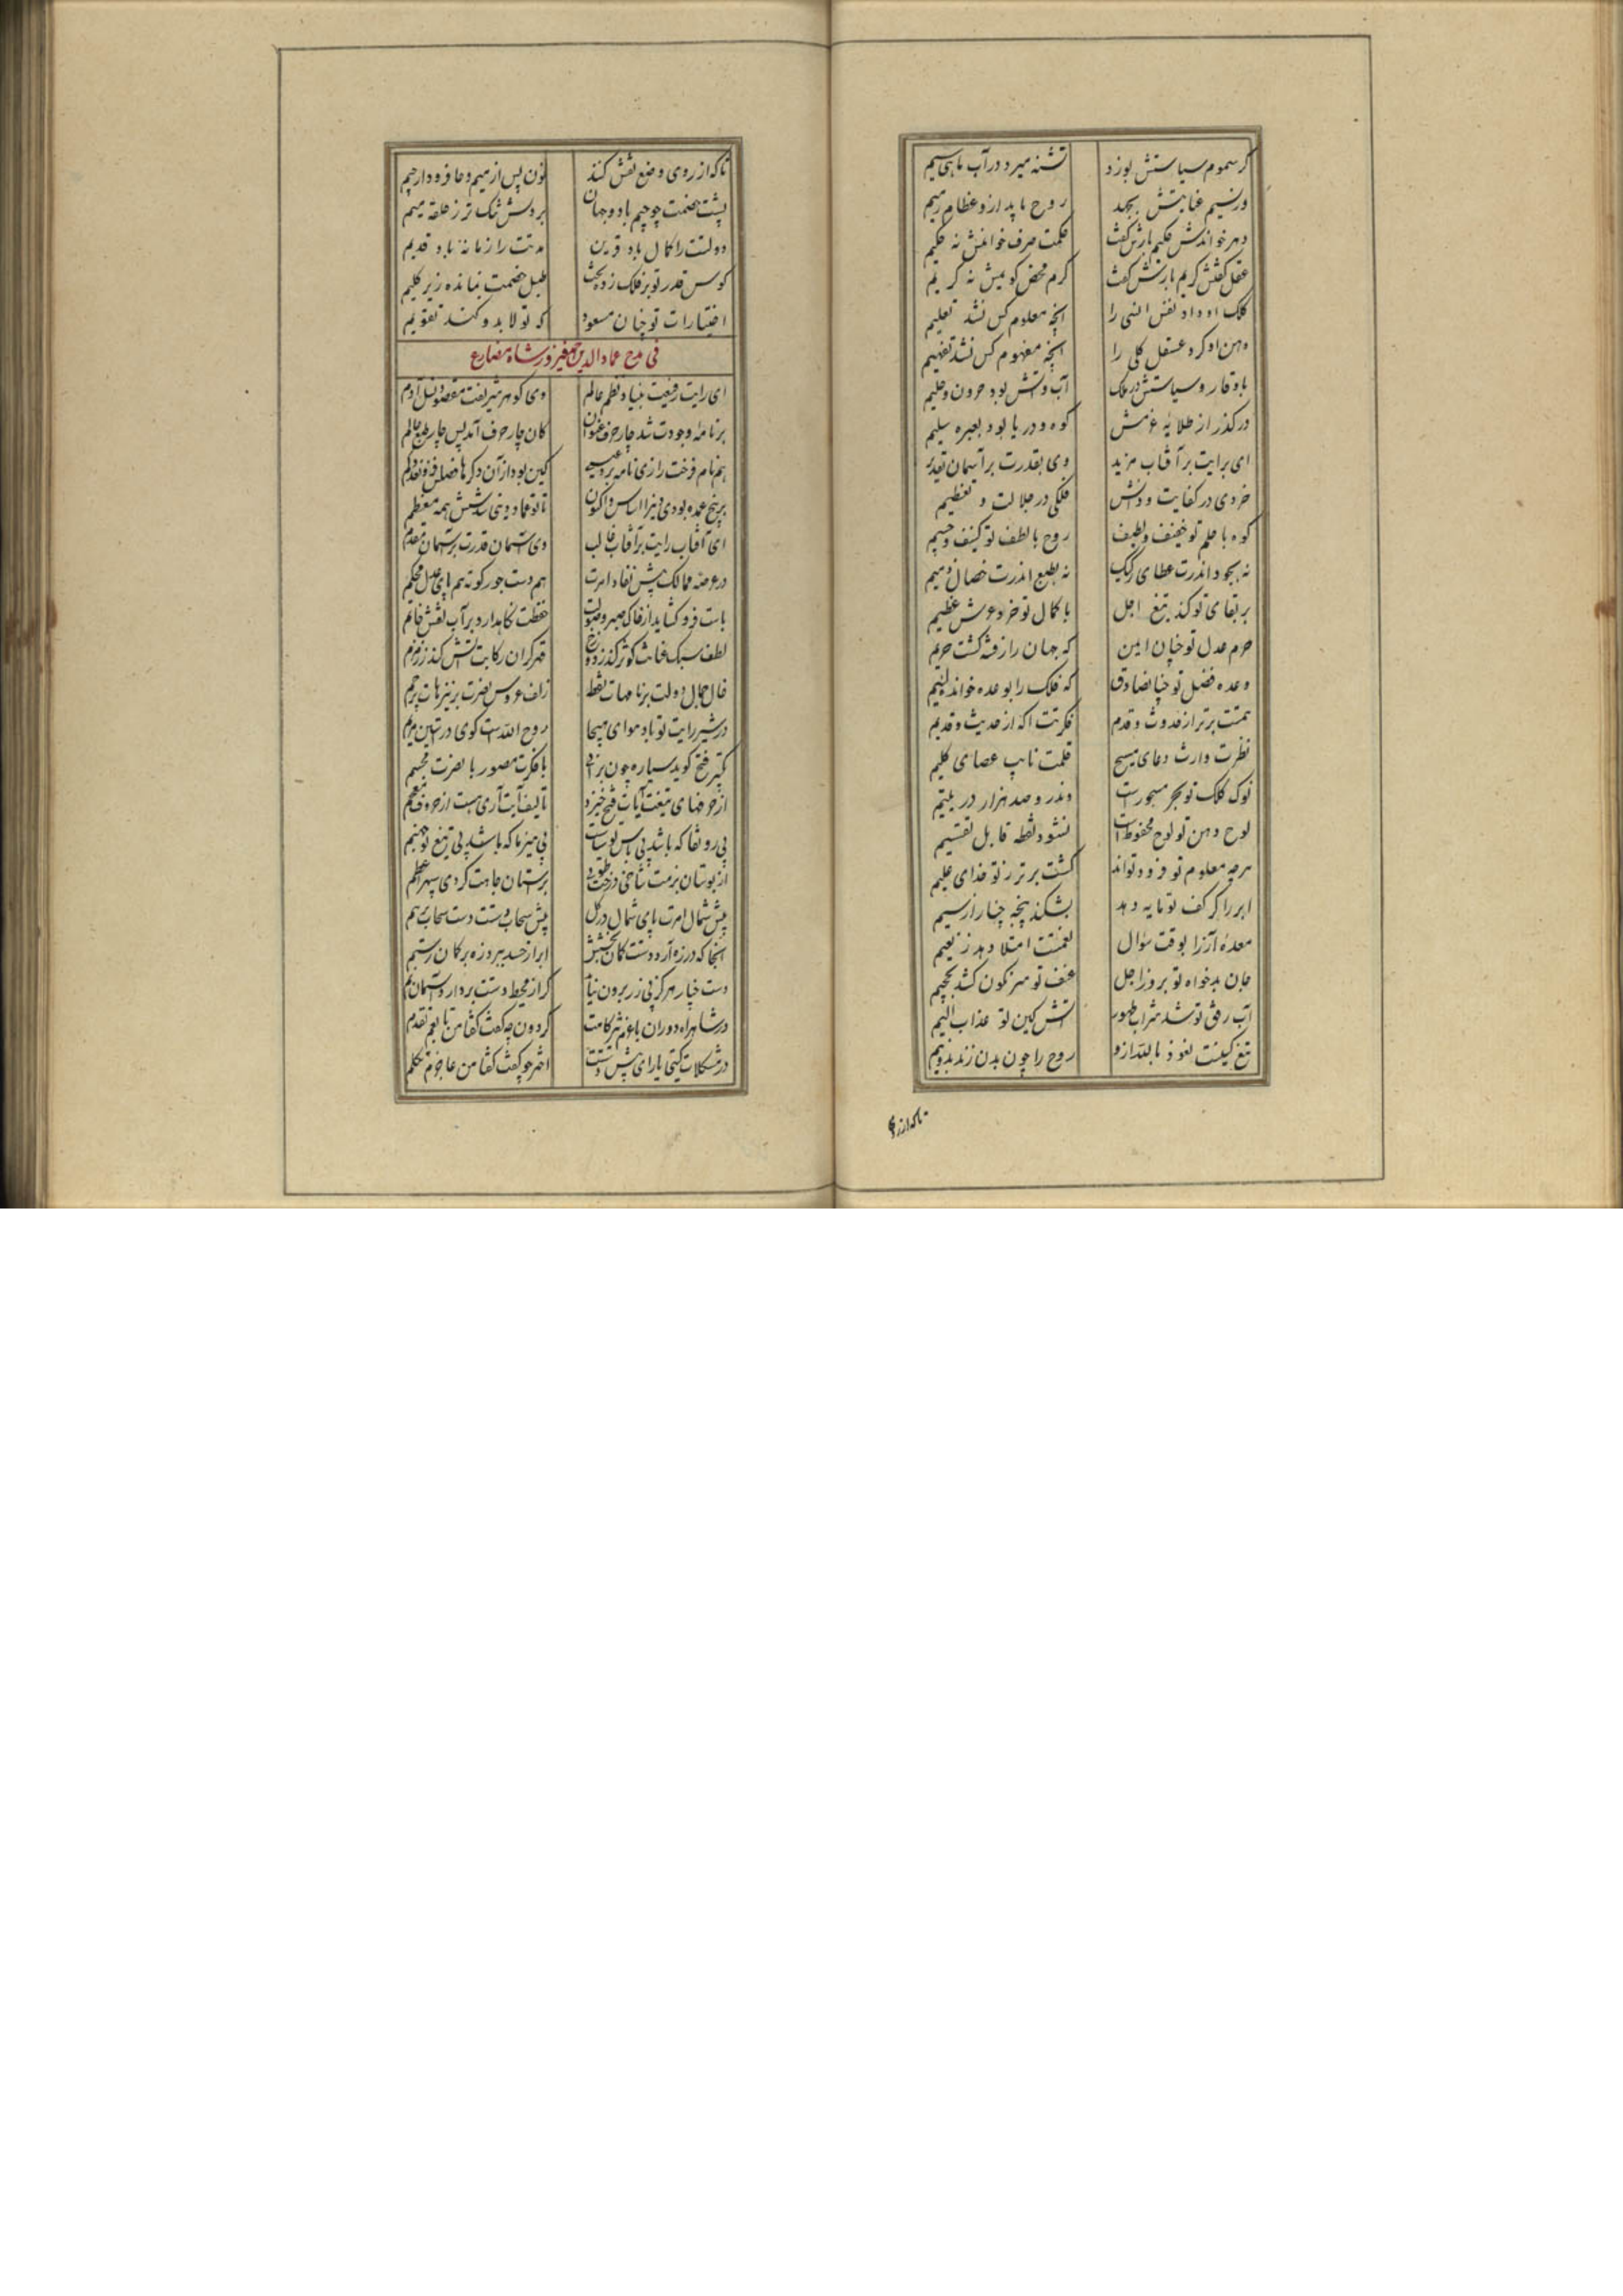 گر سموم سیاستش بوزد تشنه میرد در آب ماهی سیم
ور نسیم عنایتش بجهد روح یابد ازو عظام رمیم
دهر خواندش حکیم بازش گفت حکمت صرف خوانمش نه حکیم
عقل گفتش کریم بازش گفت کرم محض گویمش نه کریم
کلک او داد نفس انسی را آنچه معلوم کس نشد تعلیم
ذهن او کرد عقل کلی را آنچه مفهوم کس نشد تفهیم
با وقار و سیاستش در ملک آب و آتش بود حرون و حلیم
در گذر از طلایه عزمش کوه و دریا بود بعبره سلیم
ای برایت بر آفتاب مزید وی بقدرت بر آسمان تقدیم
خردی در کفایت و دانش فلکی در جلالت و تعظیم
کوه با حلم تو خفیف و لطیف روح با لطف تو کثیف و جسیم
نه بجود اندرت عطای رکیک نه بطبع اندرت خصال ذمیم
بر بقای تو کند تیغ اجل با کمال تو خرد عرش عظیم
حرم عدل تو چنان ایمن که جهان را ز فتنه گشت حریم
وعده فضل تو چنان صادق که فلک را بوعده خواند لئیم
همتت برتر از حدوث و قدم فکرتت آگه از حدیث و قدیم
نظرت وارث دعای مسیح قلمت نایب عصای کلیم
نوک کلک تو بحر مسجورست وندرو صد هزار در یتیم
لوح ذهن تو لوح محفوظ است نشود نقطه قابل تقسیم
هرچه معلوم تو فزود تواند گشت برتر ز تو خدای علیم
ابر را گر کف تو مایه دهد بشکند پنجه چنار از سیم
معده آز را بوقت سؤال نعمتت امتلا دهد ز نعیم
جان بدخواه تو بروز اجل عنف تو سرنگون کشد بجحیم
آب رفق تو شد شراب طهور آتش کین تو عذاب الیم
تیغ کینت نعوذ بالله ازو روح را چون بدن زند بدو نیم
تا که از روی
تا که از روی وضع نقش کنند نون پس از میم و حا فرود از جیم
پشت خصمت چو جیم باد و جهان بر دلش تنگ‌تر ز حلقه میم
دولتت را کمال باد قرین مدتت را زمانه باد قدیم
کوس قدر تو بر فلک زده بخت طبل خصمت بمانده زیر گلیم
اختیارات تو چنان مسعود که تولا بدو کند تقویم
فی مدح عماد الدین فیروز شاه مضارع
ای رایت رفیعت بنیاد نظم عالم وی گوهر شریفت مقصود نسل آدم
بر نامه وجودت شد چار حرف عنوان کان چار حرف آمد پس چار طبع عالم
هم نام فرخت رازی نامه بر کین بود از آن دگرها فضلش فزون
بر پنج عمده بودی دین را اساس و اکنون تا تو عماد دینی شد شش همه معظم
ای آفتاب رایت بر آفتاب غالب وی آسمان قدرت بر آسمان مقدم
در عرضه ممالک پیش نفاد امرت هم دست جور کوته هم پای عدل محکم
باست فرو گشاید از خاک صبر و صولت حفظت نگاهدارد بر آب نقش خاتم
لطف سبک عنانت کوثر کند ز دوزخ قهر گران رکابت آتش کند ز زمزم
خال جمال دولت بر نامهات نقطه زلف عروس نصرت بر نیزهات پرچم
در شیر رایت تو باد هوای هیجا روح الله است گویی در آستین مریم
تکبیر فتح گوید سیاره چون برآرد با فکرت مصور با نصرت مجسم
از حرفهای تیغت آیات فتح خیزد تالیف آیت آری هست از حروف معجم
بی رونقا که باشد بی پاس تو سیاست بی‌هیزما که باشد بی تیغ تو جهنم
از بوستان بزمت شاخی درخت طوبی بر آستان جاهت گردی سپهر اعظم
پیش شمال امرت پای شمال در گل پیش سحاب دستت دست سحاب برهم
آنجا که در زه آرد دستت کمان بخشش ابر از حسد ببرد زه بر کمان رستم
دست چنار هرگز بی زر برون نیاید گر از محیط دستت بردارد آسمان نم
در شاهراه دوران با عزم تیزگامت گردون چه گفت گفتا من تابعم تقدم
در مشکلات گیتی با رای پیش بینت اختر چو گفت گفتا من عاجزم تکلم